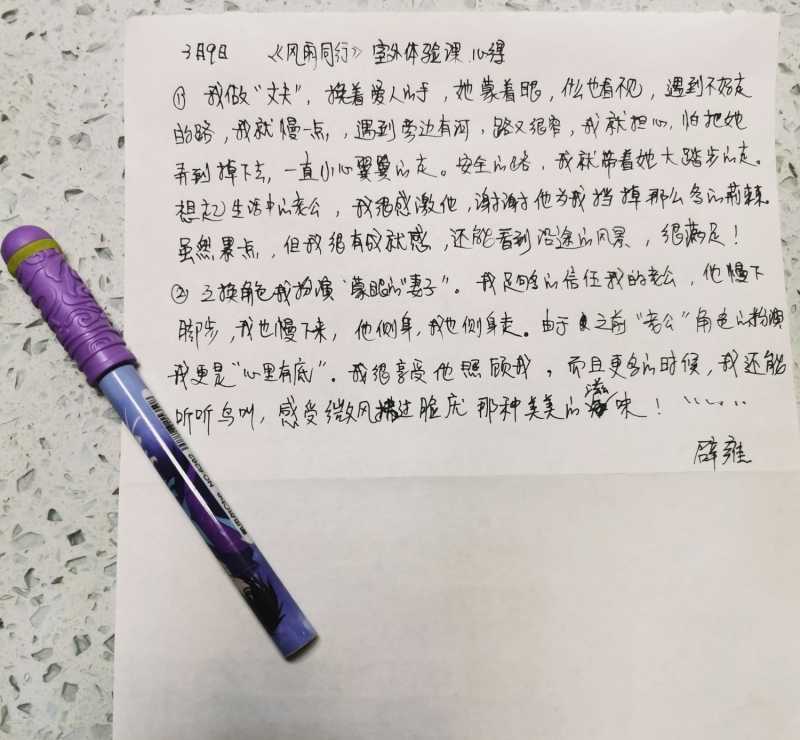 3月9日 《风雨同行》室外体验课心得
① 我做“丈夫”，挽着爱人的手，她蒙着眼，什么也看不见，遇到不好走
的路，我就慢一点，遇到旁边有河，路又很窄，我就担心，怕把她
弄到掉下去，一直小心翼翼的走。安全的路，我就带着她大踏步的走。
想起生活中的老公，我很感激他，谢谢他为我挡掉那么多的荆棘。
虽然累点，但我很有成就感，还能看到沿途的风景，很满足！
② 互换角色我扮演“蒙眼的“妻子”。我足够的信任我的老公，他慢下
脚步，我也慢下来，他侧身，我也侧身走。由于之前“老公”角色的扮演
我更是“心里有底”。我很享受他照顾我，而且更多的时候，我还能
听听鸟叫，感受微风拂过脸庞那种美美的滋味！
辟雍